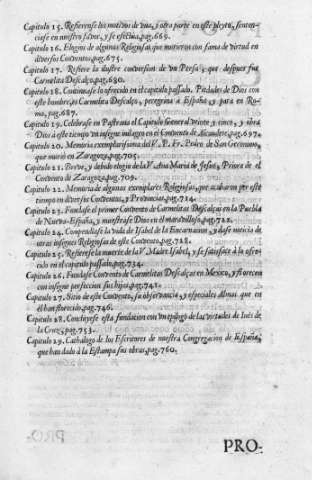 Capitulo 15. Refierense los motivos de una, i otra parte en este pleyto, senten-
ciase en nuestro favor, y se efectúa, pag.669.
Capitulo 16. Elogios de algunas Religiosas, que murieron con fama de virtud en
diversos Conventos, pag.675.
Capitulo 17. Refiere la ilustre conversion de un Persa, que despues fue
Carmelita Descalço, pag.680.
Capitulo 18. Continuase lo ofrecido en el capitulo passado. Piedades de Dios con
este hombre, ya Carmelita Descalço, peregrina a España, y para en Ro-
ma, pag.687.
Capitulo 19. Celebrase en Pastrana el Capitulo General veinte y cinco, y obra
Dios a este tiempo un insigne milagro en el Convento de Alcaudete, pag.697.
Capitulo 20. Memoria exemplarissima del V. P. Fr. Pedro de San Geronimo,
que murió en Zaragoza, pag.705.
Capitulo 21. Breve, y debido elogio de la V. Ana Maria de Jesus, Priora de el
Convento de Zaragoza, pag.709.
Capitulo 22. Memoria de algunas exemplares Religiosas, que acabaron por este
tiempo en diversos Conventos, y Provincias, pag.714.
Capitulo 23. Fundase el primer Convento de Carmelitas Descalças en la Puebla
de Nueva-España, y muestrase Dios en él maravilloso, pag.722.
Capitulo 24. Compendiase la vida de Isabel de la Encarnacion, y dase noticia de
otras insignes Religiosas de este Convento, pag.728.
Capitulo 25. Refierese la muerte de la V. Madre Isabel, y se satisface a lo ofreci-
do en el capitulo passado, pag.734.
Capitulo 26. Fundase Convento de Carmelitas Descalças en Mexico, y florecen
con insigne perfeccion sus hijas, pag.742.
Capitulo 27. Sitio de este Convento, su observancia, y especiales Almas que en
él han florecido, pag.746.
Capitulo 28. Concluyese esta fundacion con un epilogo de las virtudes de Inés de
la Cruz, pag.753.
Capitulo 29. Cathalogo de los Escritores de nuestra Congregacion de España,
que han dado à la Estampa sus obras, pag.760.
PRO-